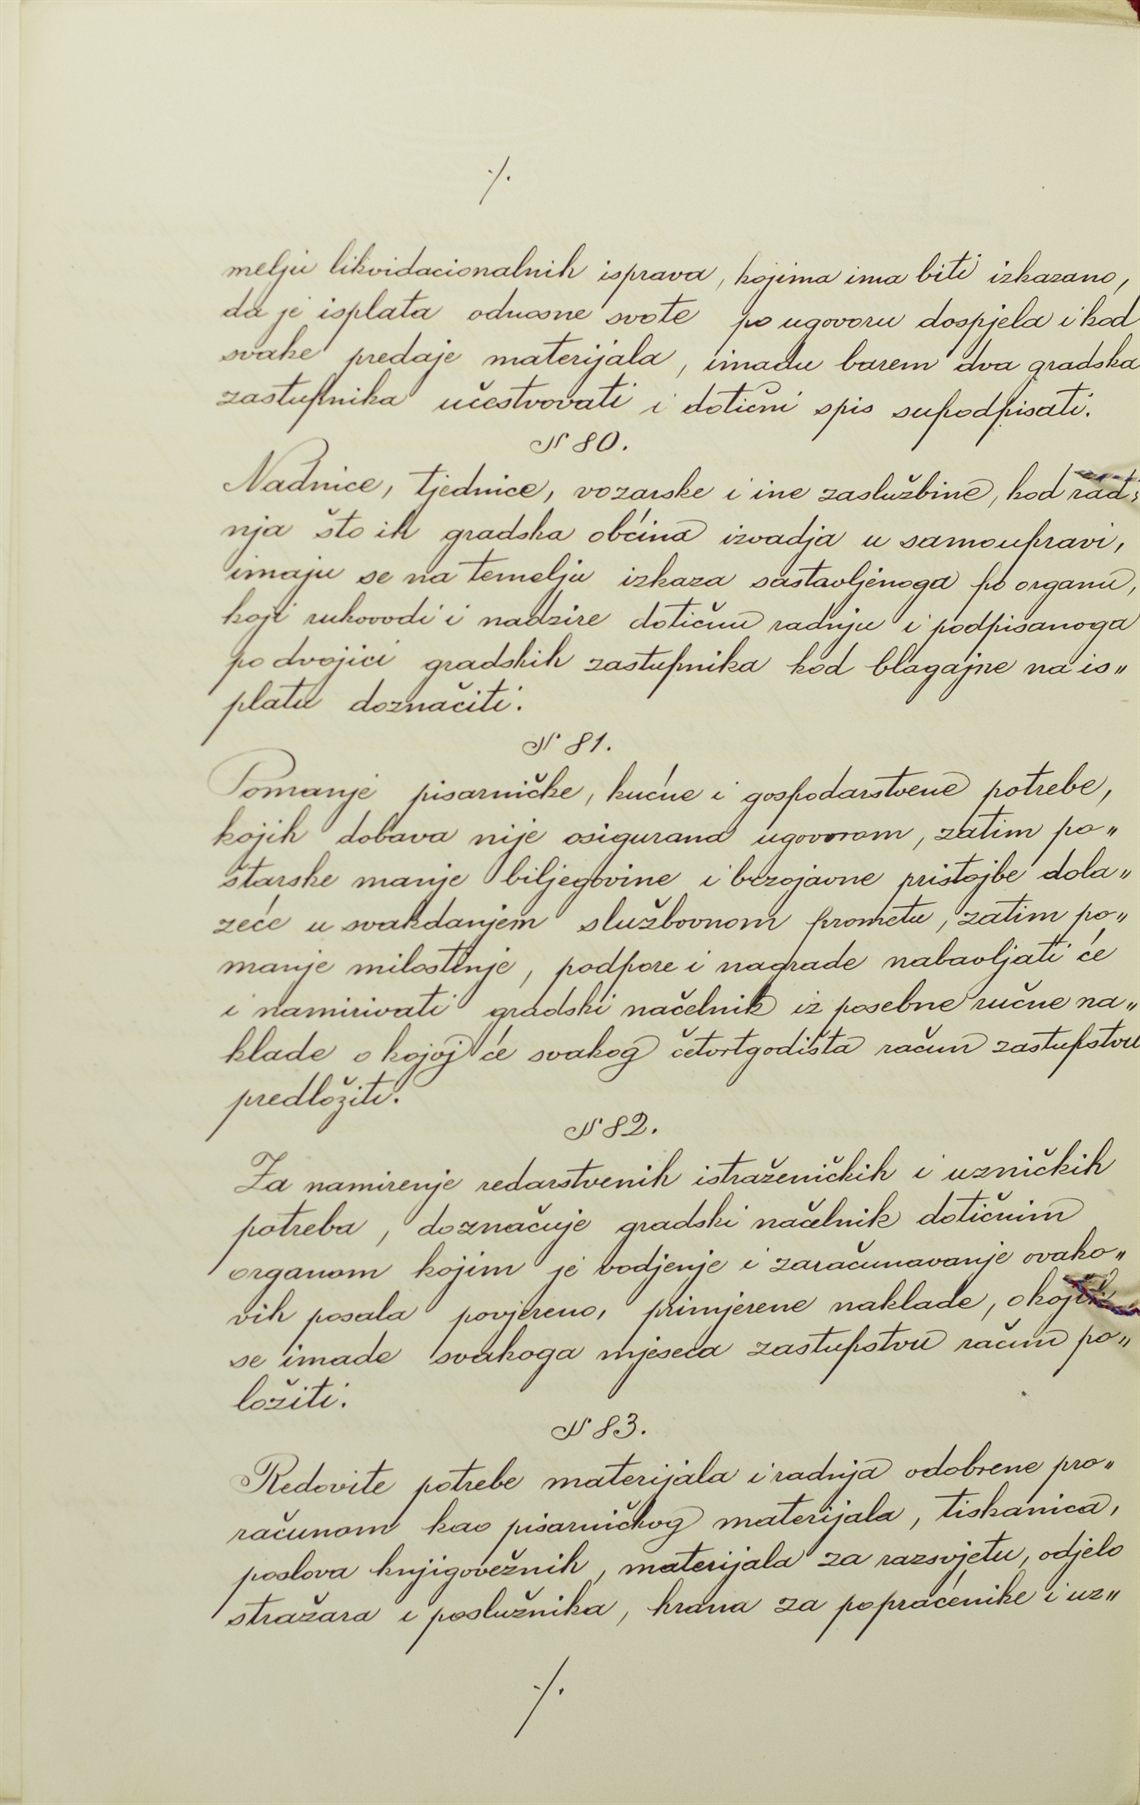 ·/.
melju likvidacionalnih isprava, kojima ima biti izkazano,
da je isplata odnosne svote po ugovoru dospjela i kod
svake predaje materijala, imadu barem dva gradska
zastupnika učestvovati i dotični spis supodpisati.
№ 80.
Nadnice, tjednice, vozarske i ine zaslužbine, kod rad„
nja što ih gradska obćina izvadja u samoupravi,
imaju se na temelju izkaza sastavljenoga po organu,
koji rukovodi i nadzire dotičnu radnju i podpisanoga
po dvojici gradskih zastupnika kod blagajne na is„
platu doznačiti.
№ 81.
Pomanje pisarničke, kućne i gospodarstvene potrebe,
kojih dobava nije osigurana ugovorom, zatim po„
štarske manje biljegovine i brzojavne pristojbe dola„
zeće u svakdanjem službovnom prometu, zatim po„
manje milostinje, podpore i nagrade nabavljati će
i namirivati gradski načelnik iz posebne ručne na„
klade o kojoj će svakog četvrtgodišta račun zastupstvu
predložiti.
№ 82.
Za namirenje redarstvenih istraženičkih i uzničkih
potreba, doznačuje gradski načelnik dotičnim
organom kojim je vodjenje i zaračunavanje ovako„
vih posala povjereno, primjerene naklade, o kojih
se imade svakoga mjeseca zastupstvu račun po„
ložiti.
№ 83.
Redovite potrebe materijala i radnja odobrene pro„
računom kao pisarničkog materijala, tiskanica,
poslova knjigovežnih, materijala za razsvjetu, odjelo
stražara i poslužnika, hrana za popraćenike i uz„
·/.